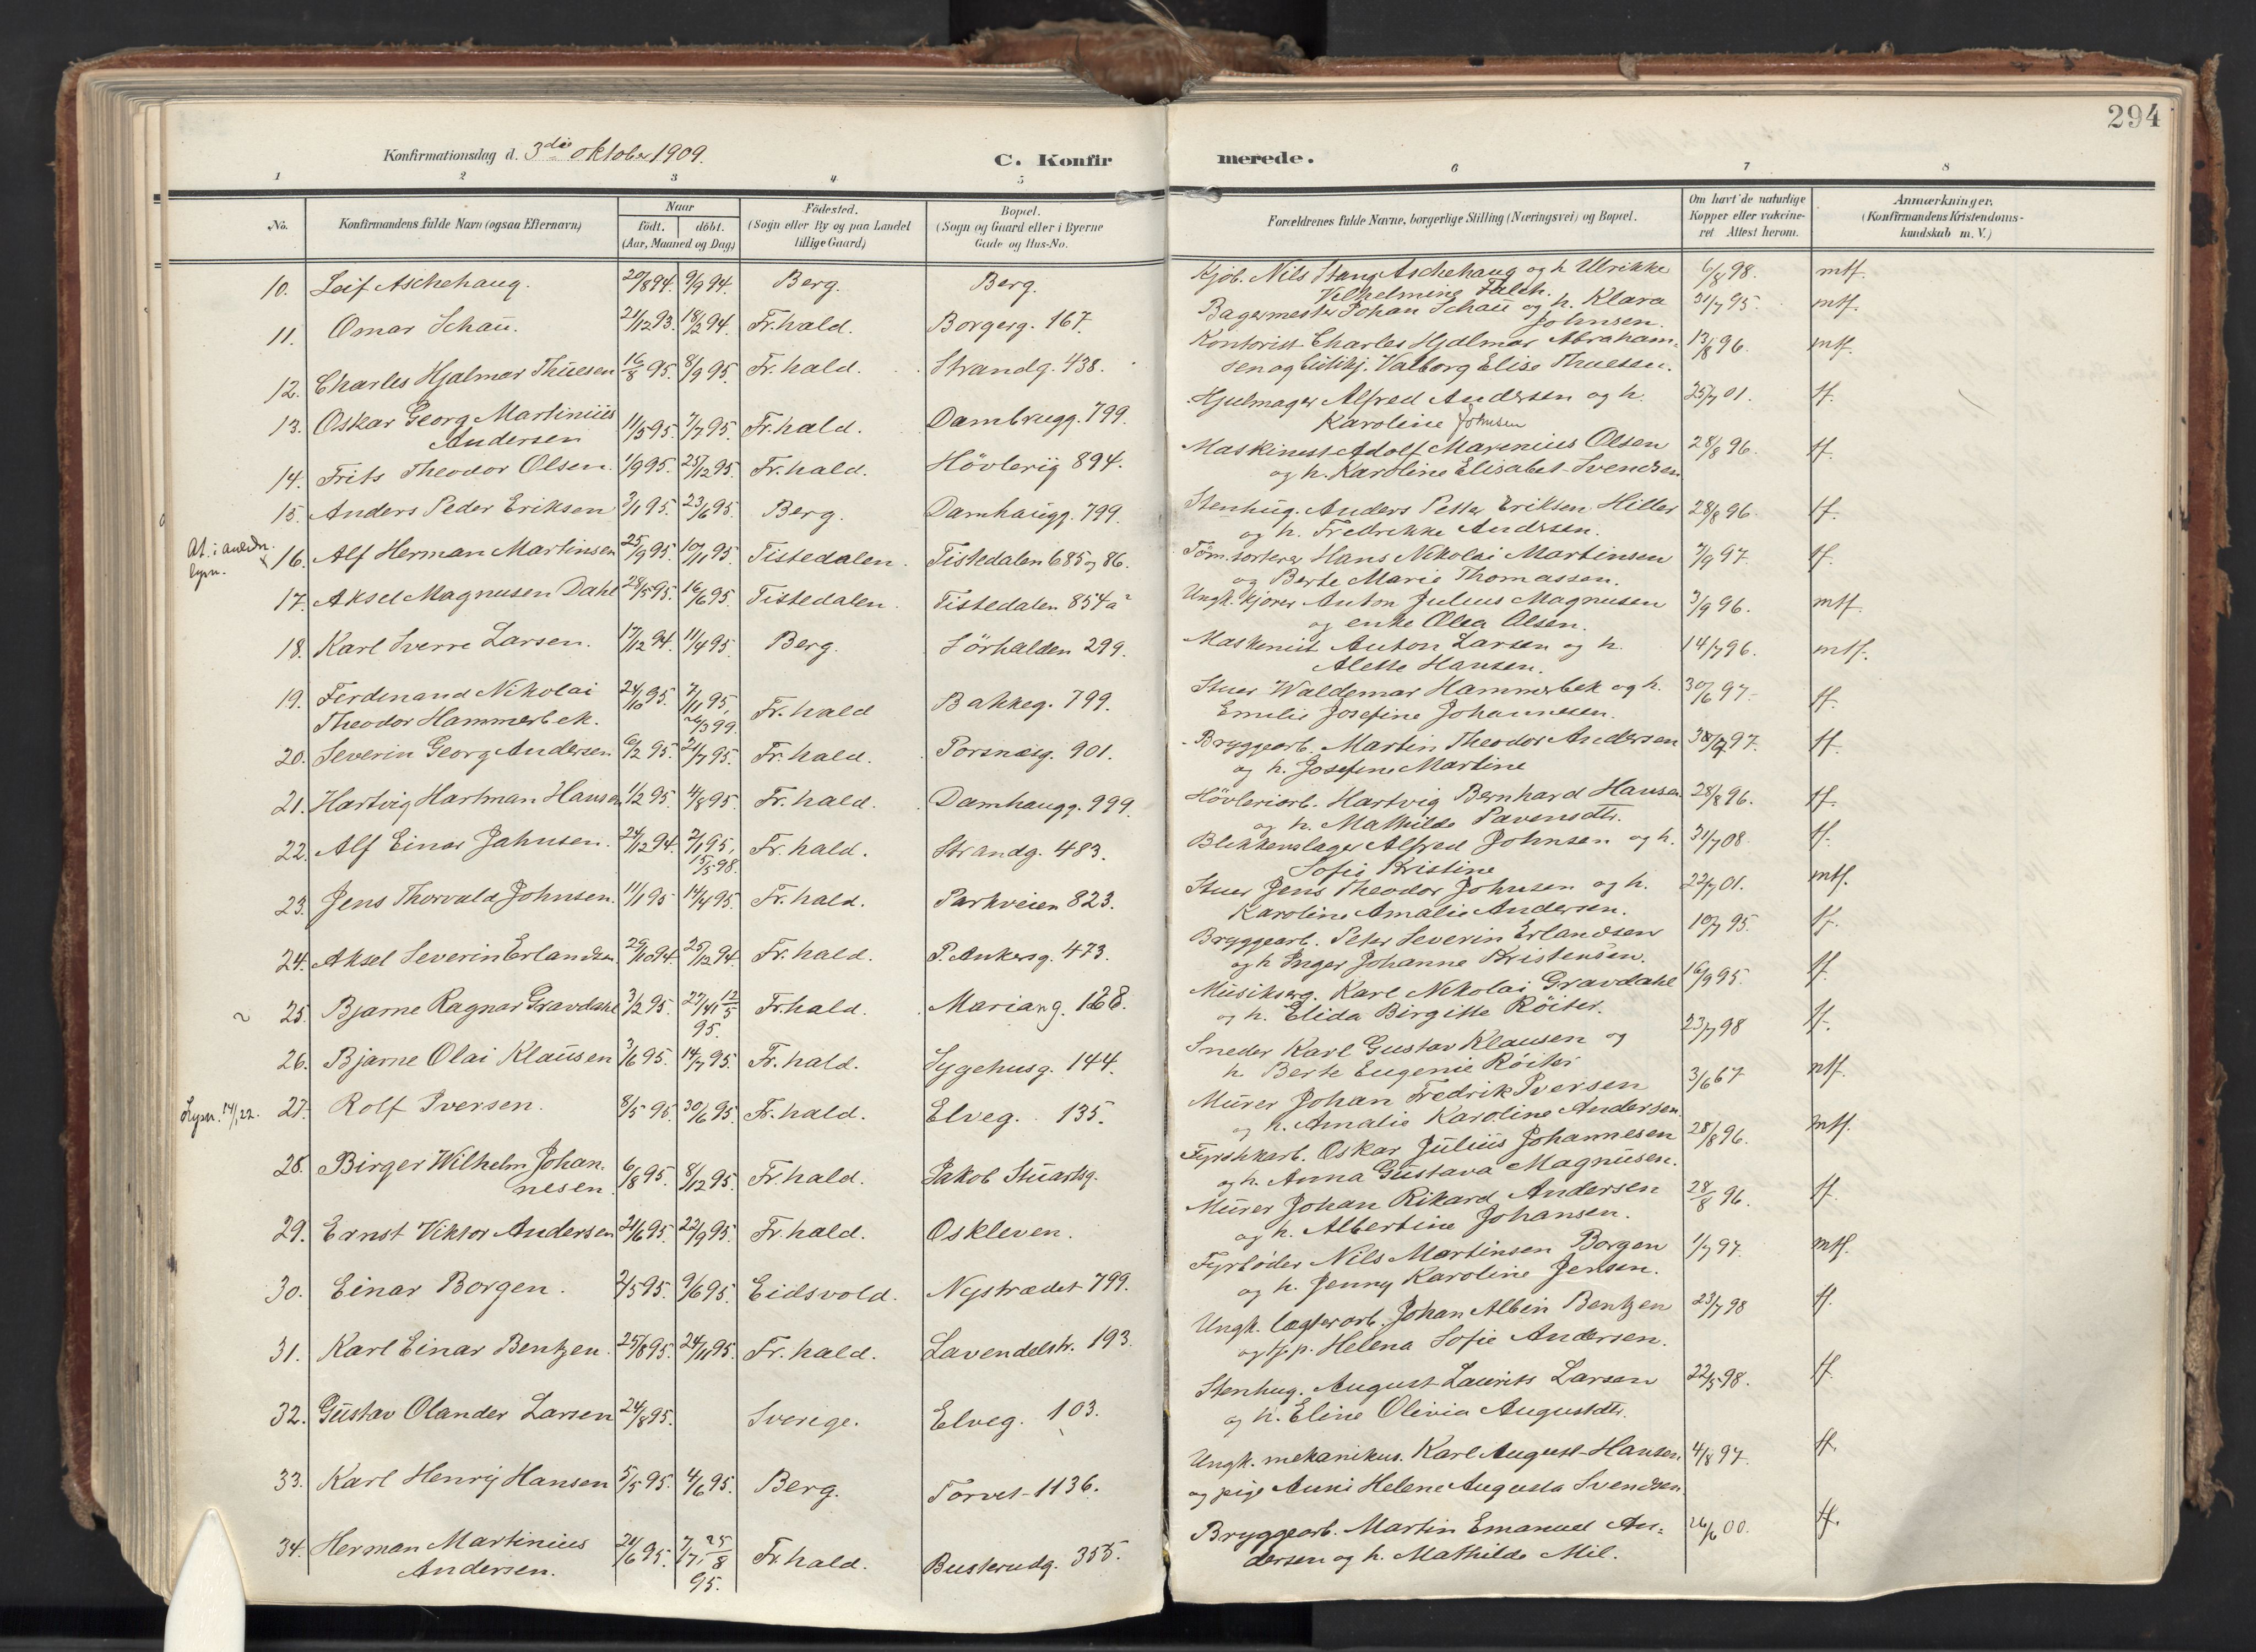 294
Konfirmationsdag d. 3die oktober 1909.
C. Konfir
merede.
1 2 3 4 5 6 7 8
No.
Konfirmandens fulde Navn (ogsaa Efternavn)
Naar
født. døbt.
(Aar, Maaned og Dag)
Fødested.
(Sogn eller By og paa Landet
tillige Gaard)
Bopæl.
(Sogn og Gaard eller i Byerne
Gade og Hus-No.
Forældrenes fulde Navne, borgerlige Stilling (Næringsvei) og Bopæl.
Om havt de naturlige
Kopper eller vakcine-
ret Attest herom.
Anmærkninger,
(Konfirmandens Kristendoms-
kundskab m. V.)
10. Leif Aschehaug. 20/8 94. 9/9 94. Berg. Berg. Kjøb. Nils Stang Aschehaug og h. Ulrikke 6/8 98. mtf.
Vilhelmine Falch.
11. Omar Schau. 21/12 93. 18/2 94. Fr.hald. Borgerg. 167. Bagermester Johan Schau og h. Klara 31/7 95. mtf.
Johnsen.
12. Charles Hjalmar Thuesen 16/8 95. 8/9 95. Fr. hald. Strandg. 438. Kontorist Charles Hjalmar Abraham- 13/8 96. mtf.
sen og Valborg Elise Thuesen.
13. Oskar Georg Martinius 11/5 95. 7/7 95. Fr.hald. Dambrugg. 799. Hjulmager Alfred Andersen og h. 25/7 01. tf.
Andersen Karoline Johnsen
14. Frits Theodor Olsen. 1/9 95. 25/12 95. Fr.hald. Høvlerig 894. Maskinist Adolf Marenius Olsen 28/8 96. tf.
og h. Karoline Elisabet Svendsen
15. Anders Peder Eriksen 3/1 95. 23/6 95. Berg. Damhaugg. 799. Stenhug. Anders Petter Eriksen Hiller 28/8 96. tf.
og h. Fredrikke Andersen.
At. i anledn.
lysn.
16. Alf Herman Martinsen 25/9 95. 10/11 95. Tistedalen. Tistedalen 685 og 86. Tøm.sorterer Hans Nikolai Martinsen 7/9 97. tf.
og Berte Marie Thomassen.
17. Aksel Magnusen Dahl 28/5 95. 16/6 95. Tistedalen. Tistedalen 854a Ungk. kjører Anton Julius Magnusen 3/9 96. mtf.
og enke Olea Olsen.
18. Karl Sverre Larsen. 17/12 94. 11/4 95. Berg. Sørhalden 299. Maskinist Anton Larsen og h. 14/7 96. mtf.
Alette Hansen.
19. Ferdinand Nikolai 24/10 95. 7/11 95, Fr.hald Bakkeg. 799. Stuer Waldemar Hammerbek og h. 30/6 97. tf.
Theodor Hammerbek. 26/3 99. Emilie Josefine Johannesen.
20. Severin Georg Andersen 6/2 95. 21/7 95. Fr.hald. Porsnæsg. 901. Bryggearb. Martin Theodor Andersen 97. tf.
og h. Josefine Martine
21. Hartvig Hartman Hansen 1/2 95. 4/8 95. Fr.hald. Damhaugg. 999. Høvleriarb. Hartvig Bernhard Hansen 28/8 96. tf.
og h. Mathilde
22. Alf Einar Jahnsen. 24/12 94. 2/1 95, Fr.hald. Strandg. 483. Blikkenslager Alfred Johnsen og h. 31/7 08. tf.
15/5 98. Sofie Kristine
23. Jens Thorvald Johnsen. 11/1 95 14/4 95. Fr.hald. Parkveien 823. Stuer Jens Theodor Johnsen og h. 22/7 01. mtf.
Karoline Amalie Andersen.
24. Aksel Severin Erlandsen. 29/10 94. 25/12 94. Fr.hald. P. Ankersg. 473. Bryggearb. Peter Severin Erlandsen 19/7 95. tf.
og h. Inger Johanne Kristensen.
25. Bjarne Ragnar Gravdahl 3/2 95. 27/4, 12/5 Fr.hald. Mariang. 168. Musikserg. Karl Nikolai Gravdahl 16/9 95. tf.
95. og h. Elida Birgitte Røiter.
26. Bjarne Olai Klausen 3/6 95. 14/7 95. Fr.hald. Sygehusg. 144. Sneder Karl Gustav Klausen og 23/7 98 tf.
h. Berte Eugenie Røiter
Lysn. 14/1 22.
27. Rolf Iversen. 8/5 95. 30/6 95. Fr.hald. Elveg. 135. Murer Johan Fredrik Iversen 3/6 67 mtf.
og h. Amalie Karoline Andersen.
28. Birger Wilhelm Johan- 6/8 95. 8/12 95. Fr.hald. Jakob Stuartsg. Fyrstikarb. Oskar Julius Johannesen 28/8 96. mtf.
nesen. og h. Anna Gustava Magnusen.
29. Ernst Viktor Andersen 21/6 95. 22/9 95. Fr.hald. Oskleven. Murer Johan Rikard Andersen 28/8 96. tf.
og h. Albertine Johansen.
30. Einar Borgen. 2/5 95. 9/6 95. Eidsvold. Nystrædet 799. Fyrbøder Nils Martinsen Borgen 1/7 97. mtf.
og h. Jenny Karoline Jensen.
31. Karl Einar Bentzen. 25/8 95. 24/11 95. Fr.hald. Lavendelstr. 193. Ungk. lagterarb. Johan Albin Bentzen 23/7 98 tf.
og tj.p. Helena Sofie Andersen.
32. Gustav Olander Larsen 24/8 95. Sverige. Elveg. 103. Stenhug. August Laurits Larsen 22/5 98. tf.
og h. Eline Olivia Augustdtr.
33. Karl Henry Hansen 5/5 95. 4/6 95. Berg. Torvet 1136. Ungk. mekanikus. Karl August Hansen 4/8 97. tf.
og pige Anni Helene Augusta Svendsen
34. Herman Martinius 21/6 95. 7/7, 25/8 Fr.hald. Busterudg. 355. Bryggearb. Martin Emanuel An- 26/6 00. tf.
Andersen. 95. dersen og h. Mathilde Mil.